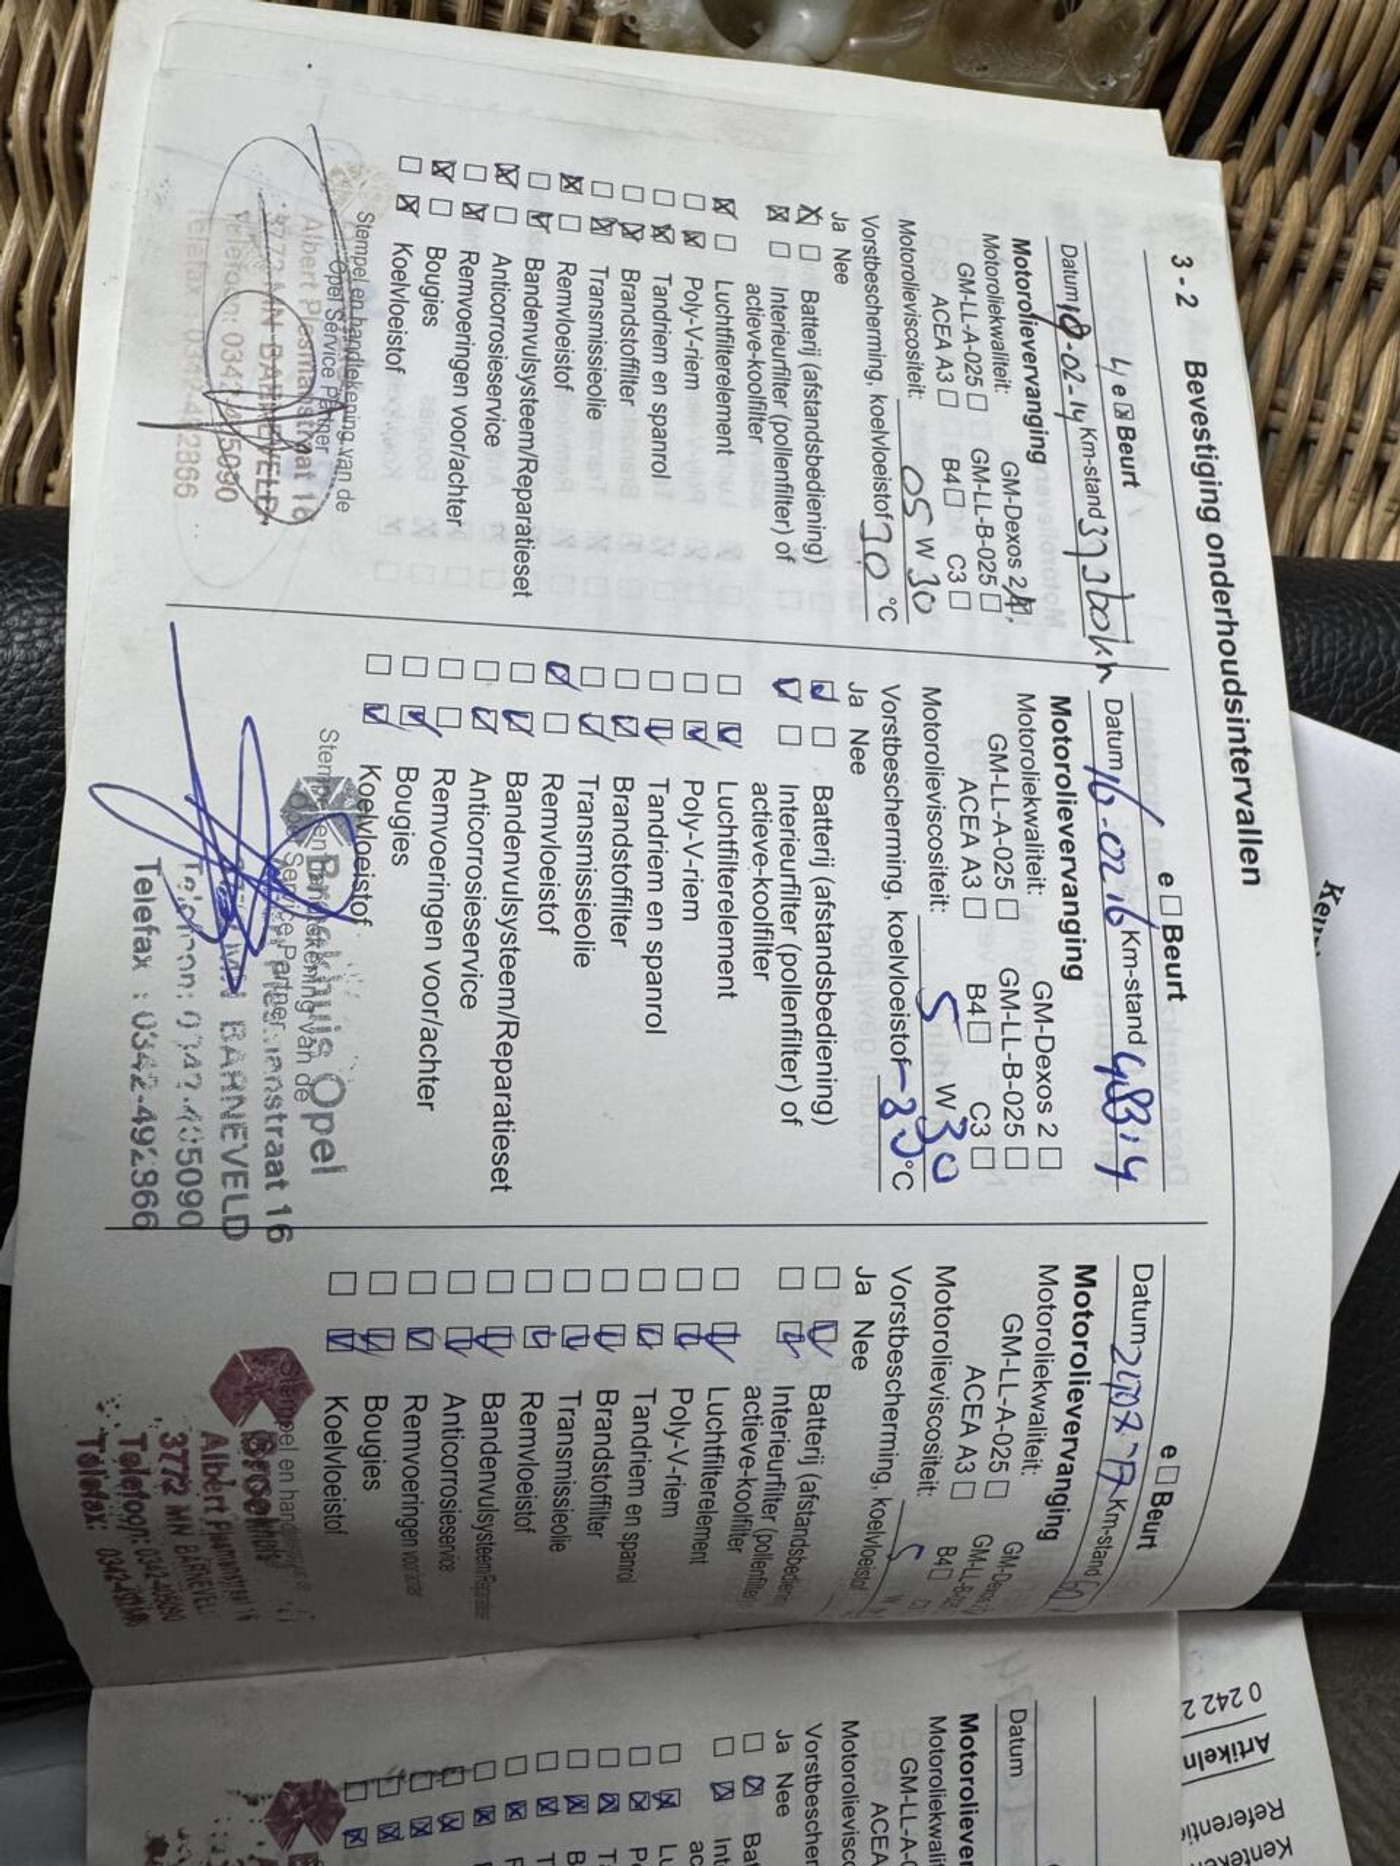 3 - 2 Bevestiging onderhoudsintervallen
4 e ☒ Beurt
Datum 18-02-14 Km-stand
Motorolievervanging
Motoroliekwaliteit: GM-Dexos 2
GM-LL-A-025 ☐ GM-LL-B-025 ☐
ACEA A3 ☐ B4 ☐ C3 ☐
Motorolieviscositeit: 05 W 30
Vorstbescherming, koelvloeistof 30 °C
Ja Nee
☒ ☐ Batterij (afstandsbediening)
☒ ☐ Interieurfilter (pollenfilter) of
actieve-koolfilter
☒ ☐ Luchtfilterelement
☐ ☒ Poly-V-riem
☐ ☒ Tandriem en spanrol
☐ ☒ Brandstoffilter
☐ ☒ Transmissieolie
☒ ☐ Remvloeistof
☐ ☒ Bandenvulsysteem/Reparatieset
☒ ☐ Anticorrosieservice
☐ ☒ Remvoeringen voor/achter
☒ ☐ Bougies
☐ ☒ Koelvloeistof
Stempel en handtekening van de
Opel Service Partner
Albert Plesmanstraat 16
3772 MN BARNEVELD
Telefoon: 0342-405090
Telefax : 0342-492866
e ☐ Beurt
Datum 16-02 16 Km-stand 48314
Motorolievervanging
Motoroliekwaliteit: GM-Dexos 2 ☐
GM-LL-A-025 ☐ GM-LL-B-025 ☐
ACEA A3 ☐ B4 ☐ C3 ☐
Motorolieviscositeit: 5 W 30
Vorstbescherming, koelvloeistof °C
Ja Nee
☑ ☐ Batterij (afstandsbediening)
☑ ☐ Interieurfilter (pollenfilter) of
actieve-koolfilter
☐ ☑ Luchtfilterelement
☐ ☑ Poly-V-riem
☐ ☑ Tandriem en spanrol
☐ ☑ Brandstoffilter
☐ ☑ Transmissieolie
☑ ☐ Remvloeistof
☐ ☑ Bandenvulsysteem/Reparatieset
☐ ☑ Anticorrosieservice
☐ ☐ Remvoeringen voor/achter
☐ ☑ Bougies
☐ ☑ Koelvloeistof
Stempel en handtekening van de
Opel Service Partner
Opel
16
BARNEVELD
Telefax : 0342-492866
e ☐ Beurt
Datum Km-stand
Motorolievervanging
Motoroliekwaliteit:
GM-LL-A-025 ☐
ACEA A3 ☐ B4 ☐
Motorolieviscositeit: 5 W
Vorstbescherming, koelvloeistof
Ja Nee
☐ ☑ Batterij
☐ ☑ Interieurfilter
actieve-koolfilter
☐ ☑ Luchtfilterelement
☐ ☑ Poly-V-riem
☐ ☑ Tandriem en spanrol
☐ ☑ Brandstoffilter
☐ ☑ Transmissieolie
☐ ☑ Remvloeistof
☐ ☑ Bandenvulsysteem
☐ ☑ Anticorrosieservice
☐ ☑ Remvoeringen
☐ ☑ Bougies
☐ ☑ Koelvloeistof
Albert
3772 MN BARNEVEL
Telefoon: 0342-405090
Telefax:
Datum
Motoroliever
Motoroliekwalit
GM-LL-A-
ACEA
Motorolievisco
Vorstbescher
Ja Nee
0 242 2
Artikeln
Referentie
Kenteke